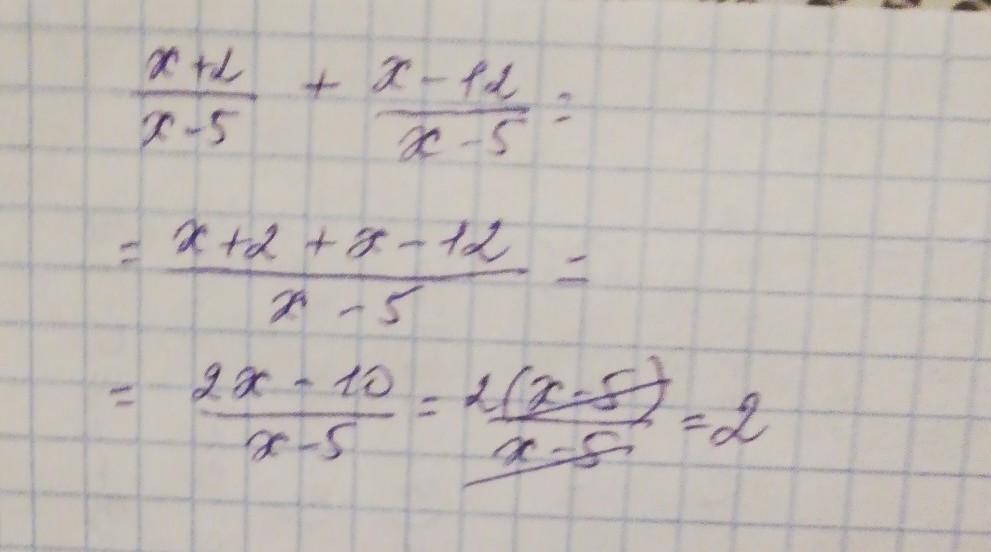 \frac{x+2}{x-5} + \frac{x-12}{x-5} =
= \frac{x+2+x-12}{x-5} =
= \frac{2x-10}{x-5} = \frac{2(x-5)}{x-5} = 2